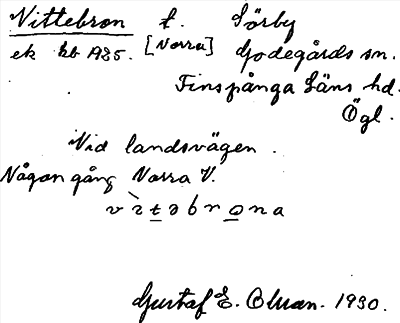 Vittebron t. Sörby
ek kb 1925. [Norra] Godegårds sn.
Finspånga läns hd.
Ögl.
Vid landsvägen.
Någon gång Norra V.
vìtəbrona
Gustaf E. 1930.